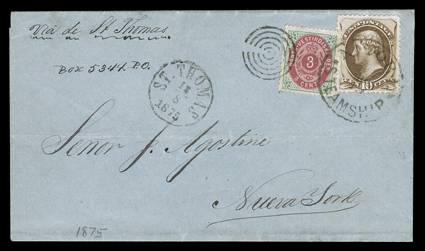 Via de St. Thomas
BOX 5344. P.O.
ST. THOMAS
1875
VESTINDISKE
3
3 CENTS
10
STEAMSHIP
Senor J. Agostine
Nueva York
1875